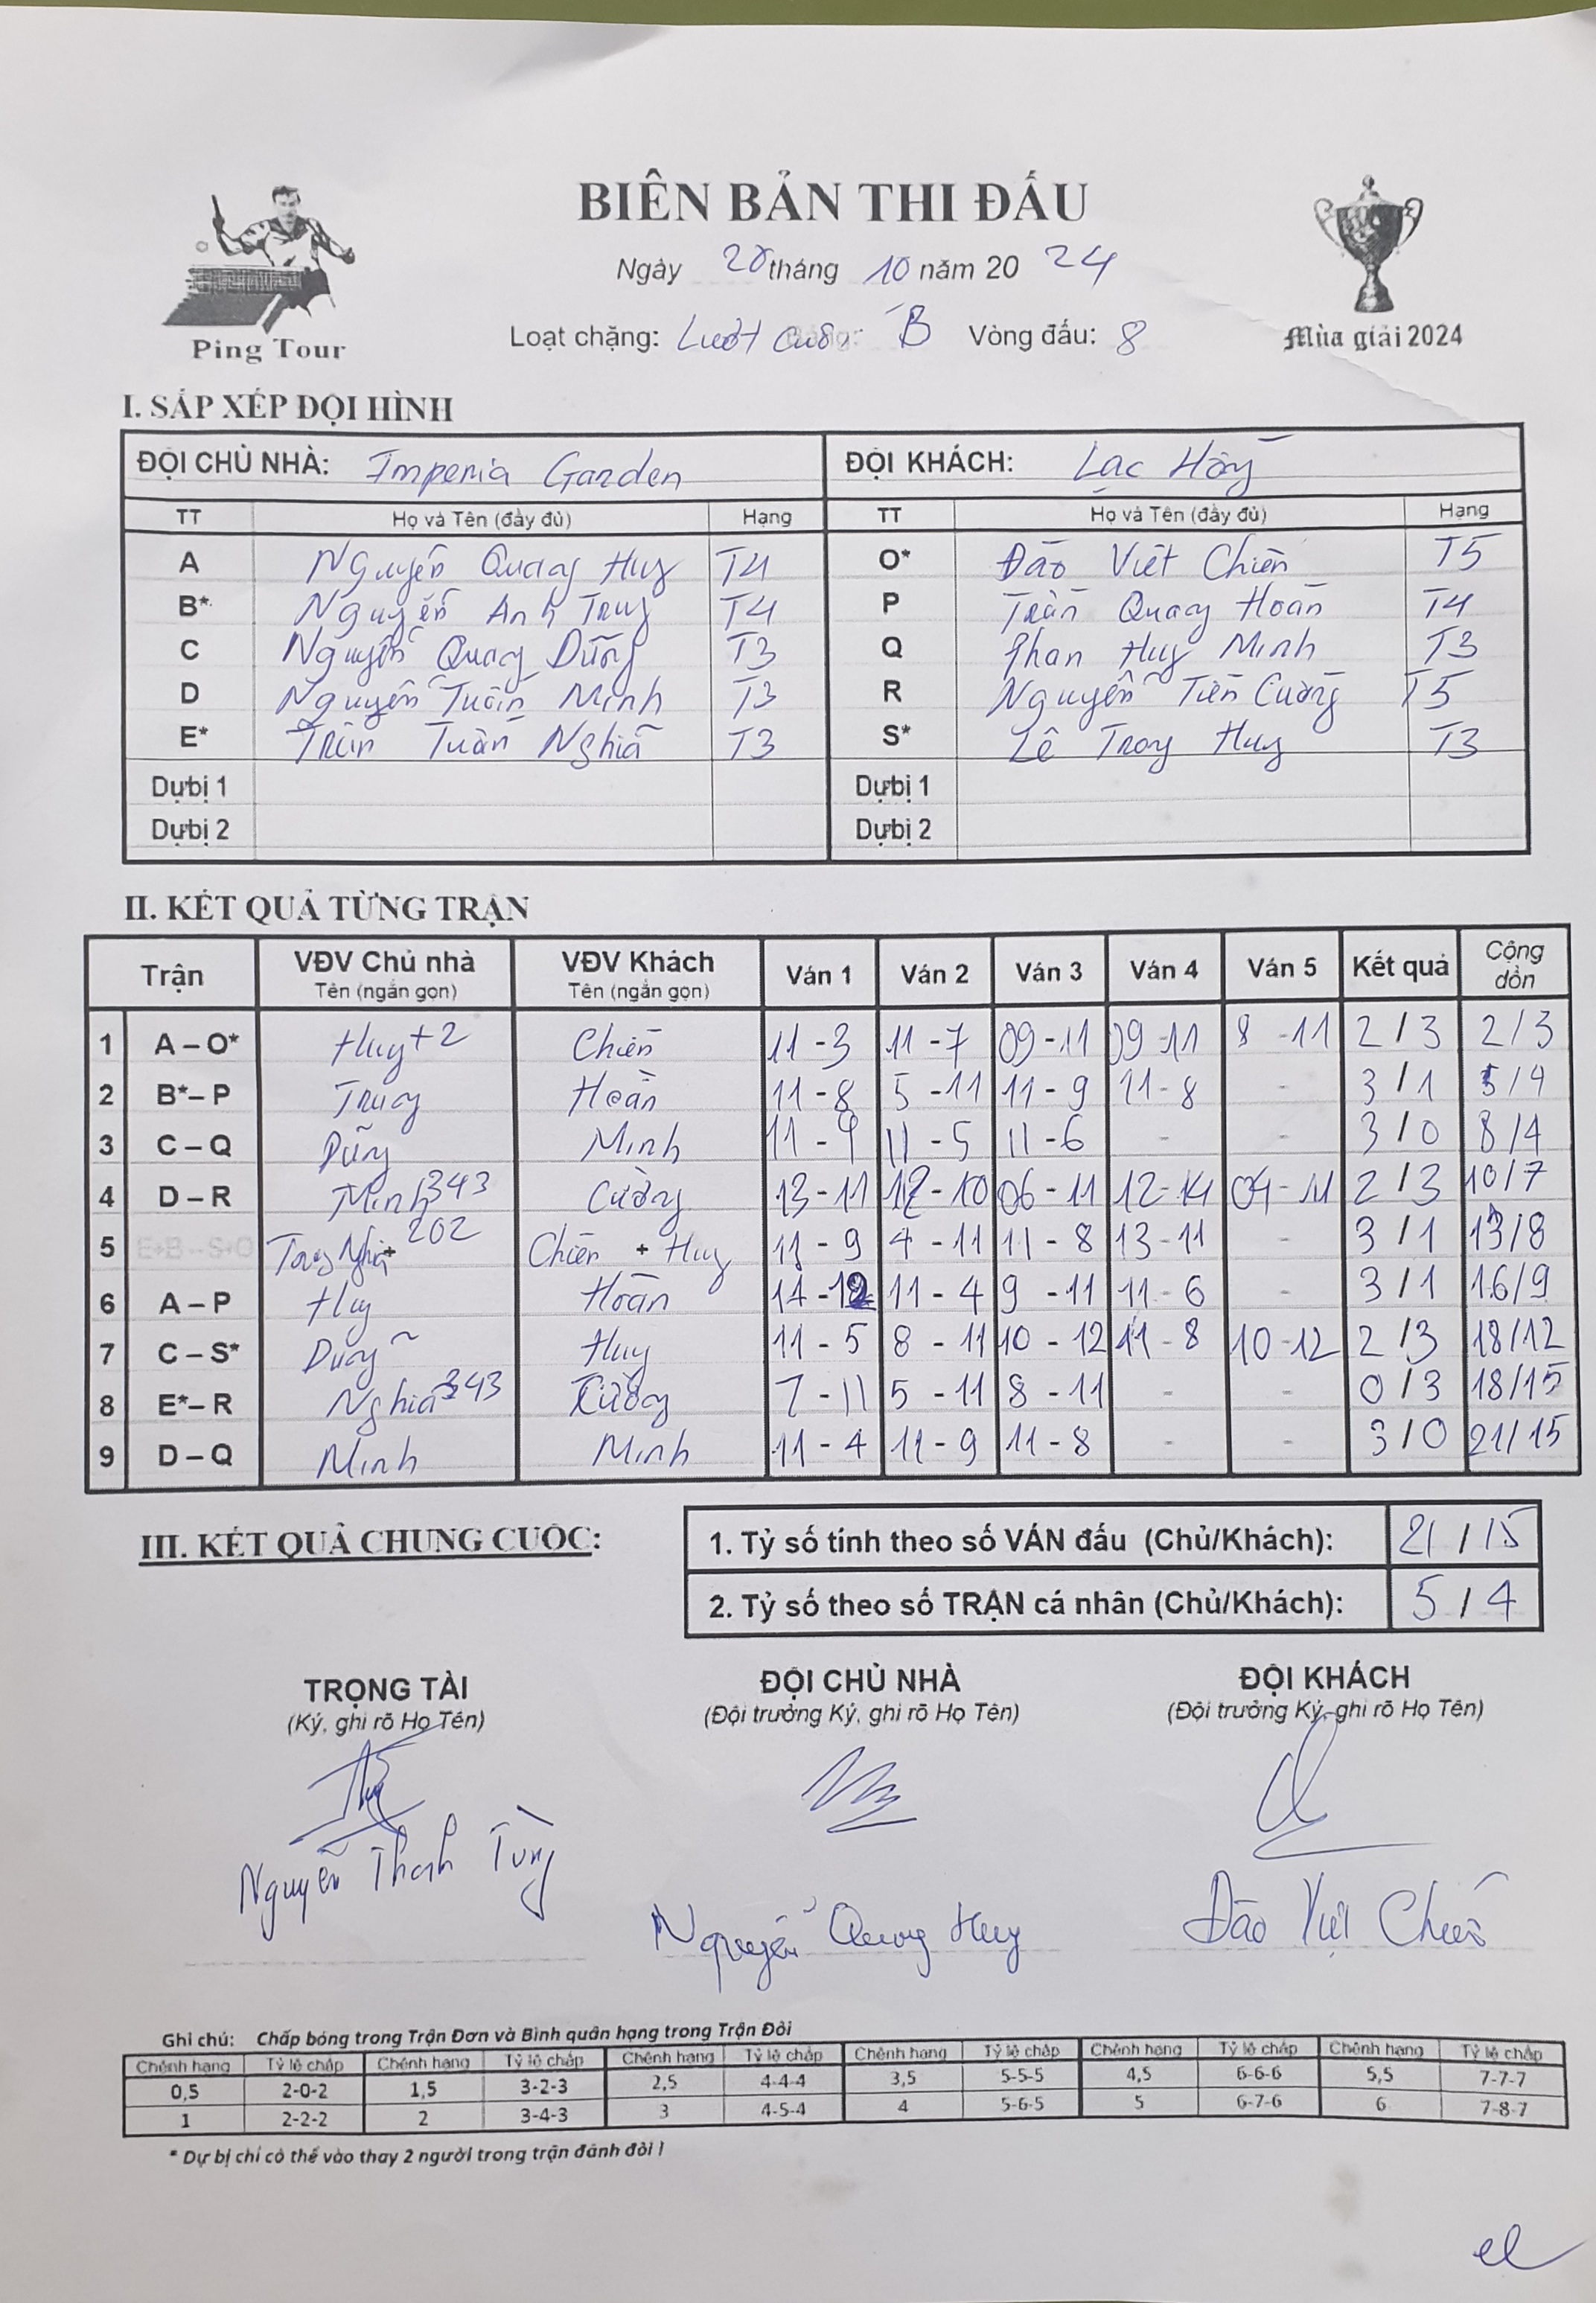 BIÊN BẢN THI ĐẤU
Ngày 20 tháng 10 năm 20 24
Ping Tour
Mùa giải 2024
Loạt chặng: Lượt cuối B Vòng đấu: 8
I. SẮP XẾP ĐỘI HÌNH
ĐỘI CHỦ NHÀ: Imperia Garden ĐỘI KHÁCH: Lạc Hồng
TT Họ và Tên (đầy đủ) Hạng TT Họ và Tên (đầy đủ) Hạng
A Nguyễn Quang Huy T4 O* Đào Viết Chiến T5
B* Nguyễn Anh Trung T4 P Trần Quang Hoàn T4
C Nguyễn Quang Dũng T3 Q Phan Huy Minh T3
D Nguyễn Tuấn Minh T3 R Nguyễn Tiến Cường T5
E* Trần Tuấn Nghĩa T3 S* Lê Trọng Huy T3
Dự bị 1 Dự bị 1
Dự bị 2 Dự bị 2
II. KẾT QUẢ TỪNG TRẬN
Trận VĐV Chủ nhà Tên (ngắn gọn) VĐV Khách Tên (ngắn gọn) Ván 1 Ván 2 Ván 3 Ván 4 Ván 5 Kết quả Cộng dồn
1 A – O* Huy+2 Chiến 11 - 3 11 - 7 09 - 11 09 - 11 8 - 11 2 / 3 2 / 3
2 B*– P Trung Hoàn 11 - 8 5 - 11 11 - 9 11 - 8 - 3 / 1 5 / 4
3 C – Q Dũng Minh 11 - 9 11 - 5 11 - 6 - - 3 / 0 8 / 4
4 D – R Minh 343 Cường 13 - 11 12 - 10 06 - 11 12 - 14 04 - 11 2 / 3 10 / 7
5 E+B – S+O Trung Nghĩa + 202 Chiến + Huy 11 - 9 4 - 11 11 - 8 13 - 11 - 3 / 1 13 / 8
6 A – P Huy Hoàn 14 - 12 11 - 4 9 - 11 11 - 6 - 3 / 1 16 / 9
7 C – S* Dũng Huy 11 - 5 8 - 11 10 - 12 11 - 8 10 - 12 2 / 3 18 / 12
8 E*– R Nghĩa 343 Cường 7 - 11 5 - 11 8 - 11 - - 0 / 3 18 / 15
9 D – Q Minh Minh 11 - 4 11 - 9 11 - 8 - - 3 / 0 21 / 15
III. KẾT QUẢ CHUNG CUỘC:
1. Tỷ số tính theo số VÁN đấu (Chủ/Khách): 21 / 15
2. Tỷ số theo số TRẬN cá nhân (Chủ/Khách): 5 / 4
TRỌNG TÀI ĐỘI CHỦ NHÀ ĐỘI KHÁCH
(Ký, ghi rõ Họ Tên) (Đội trưởng Ký, ghi rõ Họ Tên) (Đội trưởng Ký, ghi rõ Họ Tên)
Nguyễn Thanh Tùng Nguyễn Quang Huy Đào Viết Chiến
Ghi chú: Chấp bóng trong Trận Đơn và Bình quân hạng trong Trận Đôi
Chênh hạng Tỷ lệ chấp Chênh hạng Tỷ lệ chấp Chênh hạng Tỷ lệ chấp Chênh hạng Tỷ lệ chấp Chênh hạng Tỷ lệ chấp Chênh hạng Tỷ lệ chấp
0,5 2-0-2 1,5 3-2-3 2,5 4-4-4 3,5 5-5-5 4,5 6-6-6 5,5 7-7-7
1 2-2-2 2 3-4-3 3 4-5-4 4 5-6-5 5 6-7-6 6 7-8-7
* Dự bị chỉ có thể vào thay 2 người trong trận đánh đôi !